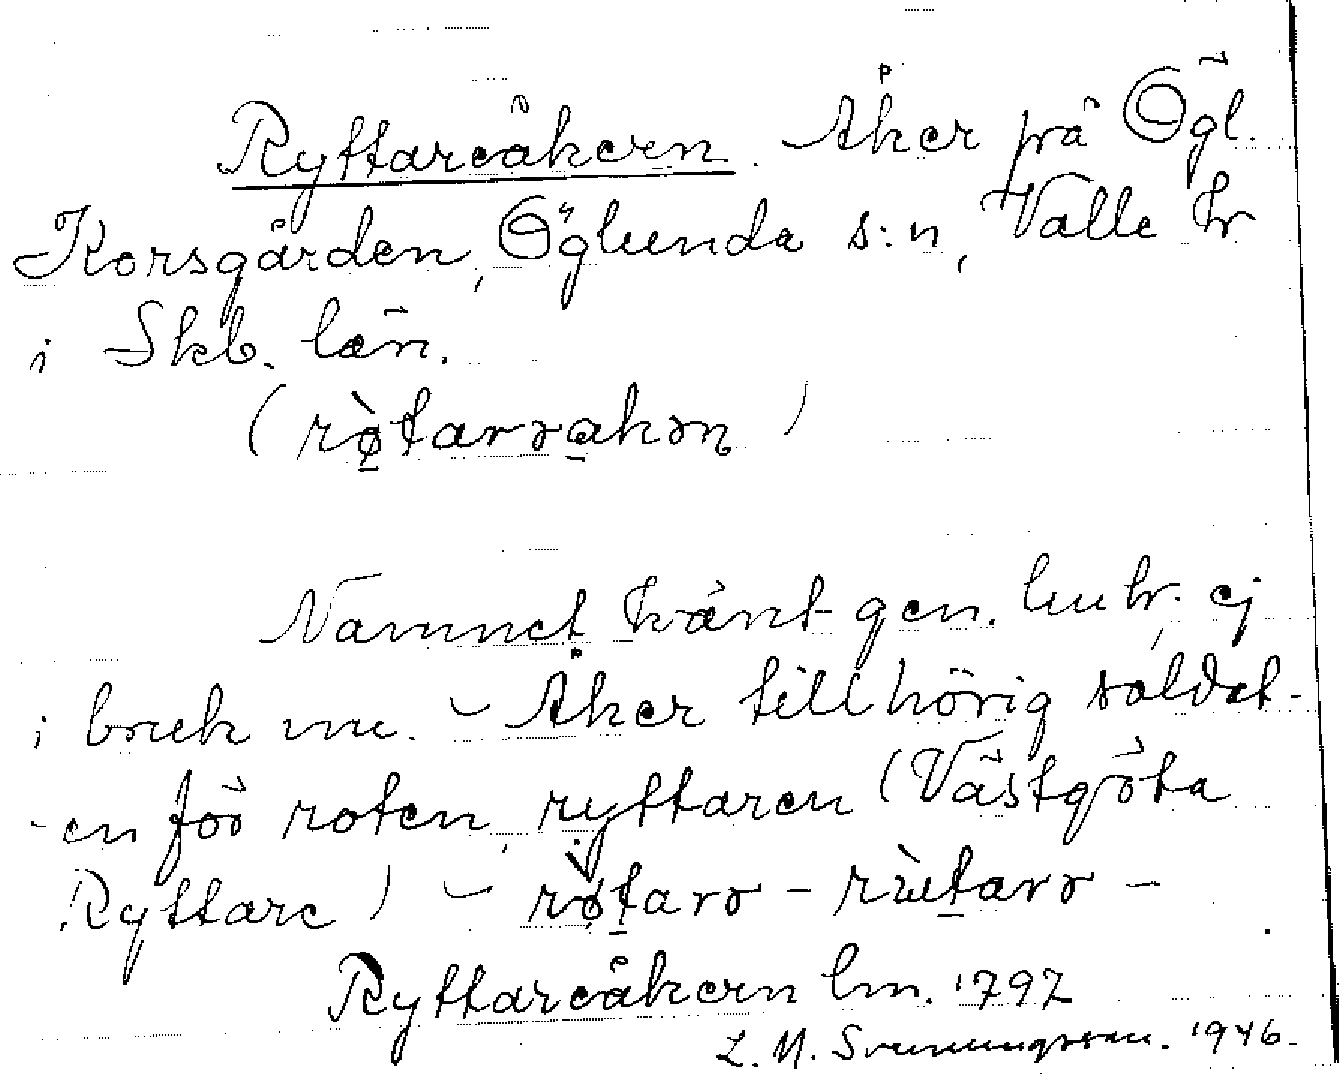 Ryttareåkern. Åker på Ögl.
Korsgården, Öglunda s:n, Valle hr
i Skb. län.
(rø̀tarəakən)
Namnet känt gen. lmhr, ej
i bruk nu. – Åker tillhörig soldat-
en för roten, ryttaren (Västgöta
Ryttare) – røtarə – rùtarə –
Ryttareåkern lm. 1797
L. M. Svenungsson. 1946.